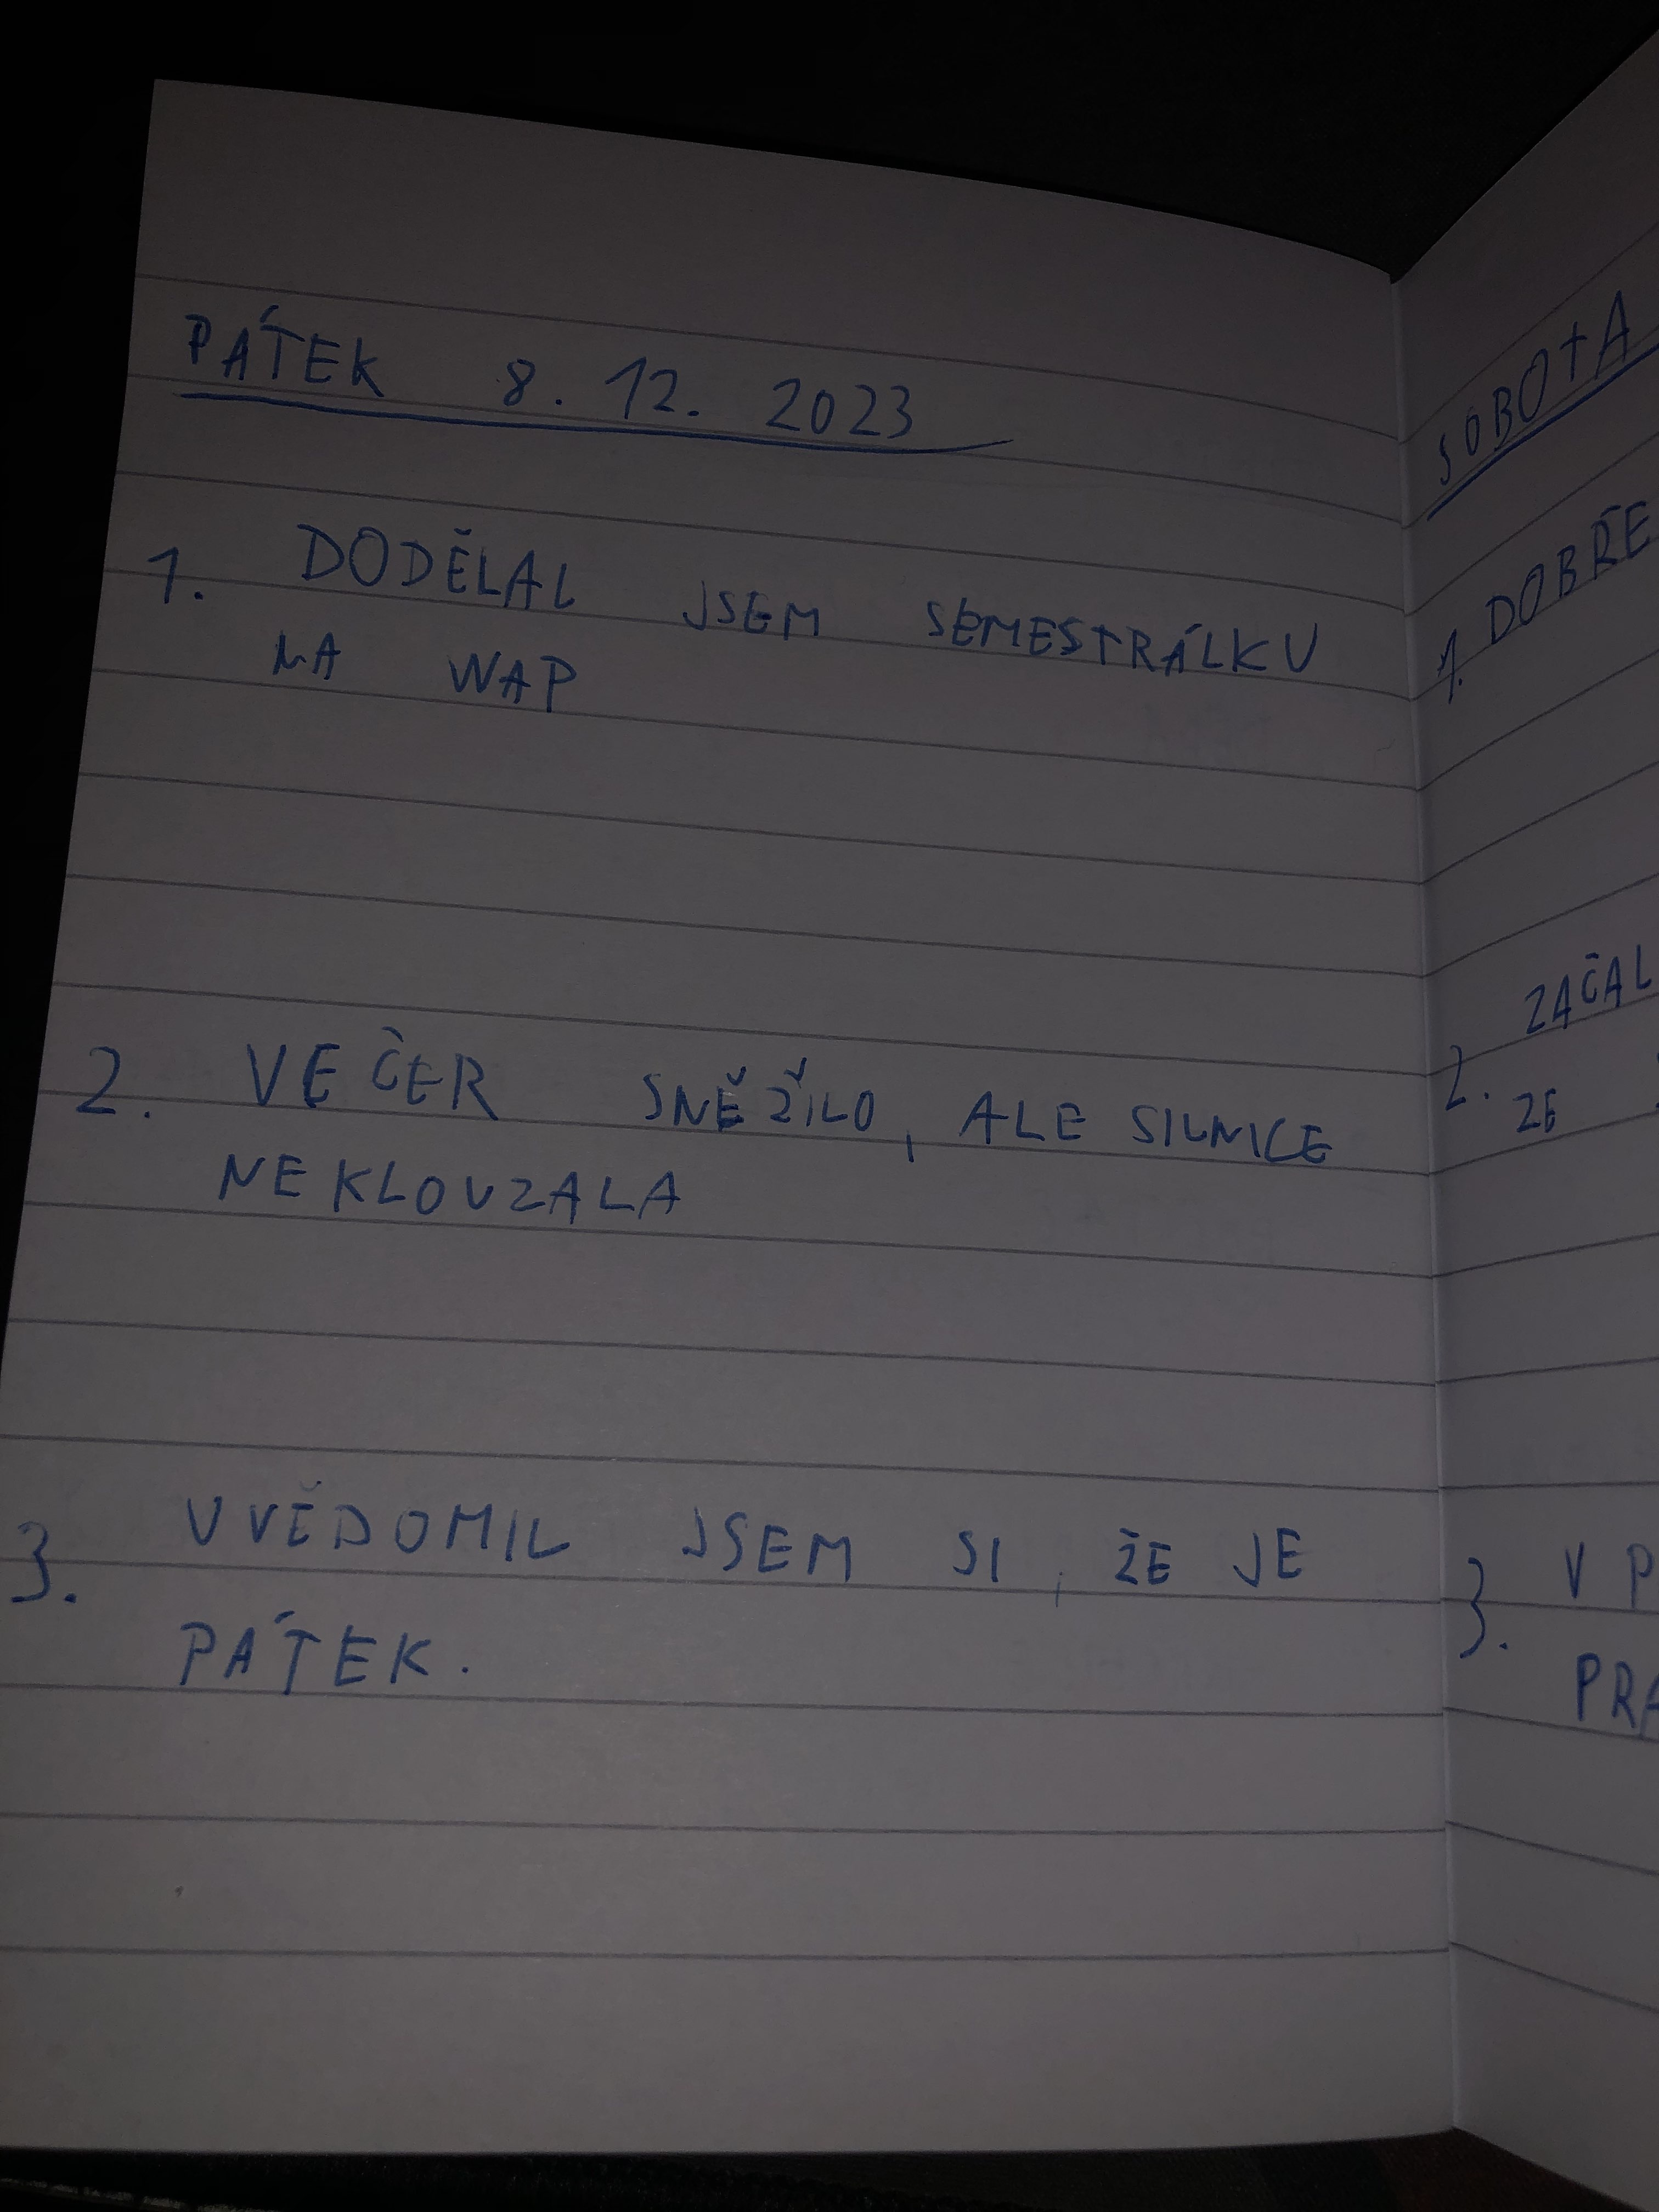 PÁTEK 8. 12. 2023
1. DODĚLAL JSEM SEMESTRÁLKU
NA WAP
2. VEČER SNĚŽILO, ALE SILNICE
NEKLOUZALA
3. UVĚDOMIL JSEM SI, ŽE JE
PÁTEK.
SOBOTA
1. DOBŘE
2. ZAČAL
ZE
3. V P
PRA